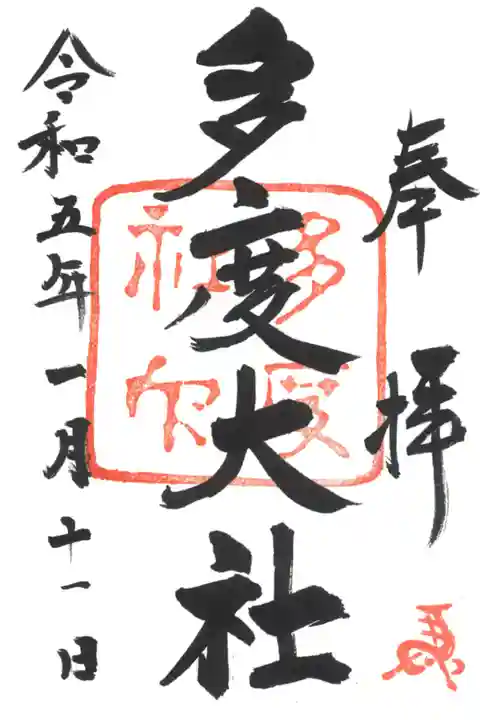 奉拝
多度大社
令和五年一月十一日
多度
社印